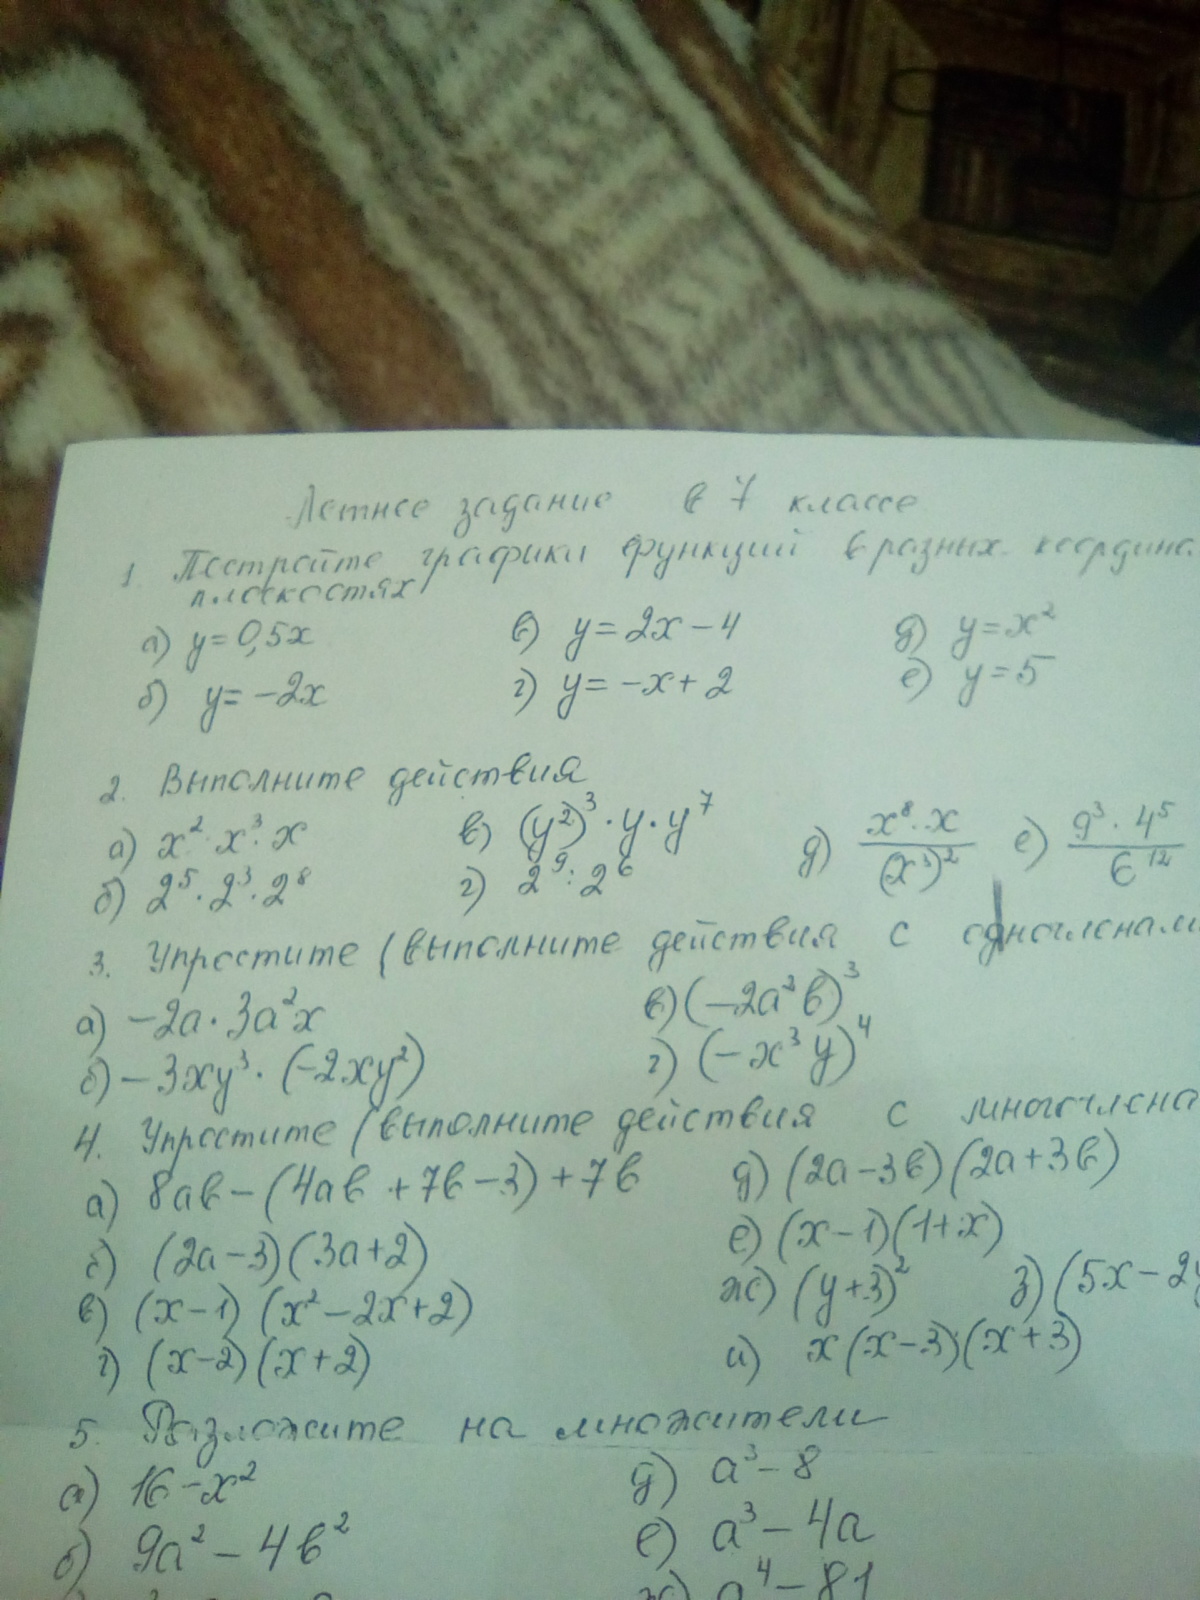 Летнее задание в 7 классе
1. Постройте графики функций в разных
плоскостях
а) y=0,5x в) y=2x-4 д) y=x²
б) y=-2x г) y=-x+2 е) y=5
2. Выполните действия
а) x²·x³·x в) (y²)³·y·y⁷ д) x⁸·x/(x³)² е) 9³·4⁵/6¹²
б) 2⁵·2³·2⁸ г) 2⁹:2⁶
3. Упростите (выполните действия с одночленами
а) -2a·3a²x в) (-2a²b)³
б) -3xy³·(-2xy²) г) (-x³y)⁴
4. Упростите (выполните действия с многочлена
а) 8ab-(4ab+7b-3)+7b д) (2a-3b)(2a+3b)
б) (2a-3)(3a+2) е) (x-1)(1+x)
в) (x-1)(x²-2x+2) ж) (y+3)² з) (5x-2y
г) (x-2)(x+2) и) x(x-3)(x+3)
5. Разложите на множители
а) 16-x² д) a³-8
б) 9a²-4b² е) a³-4a
ж) a⁴-81